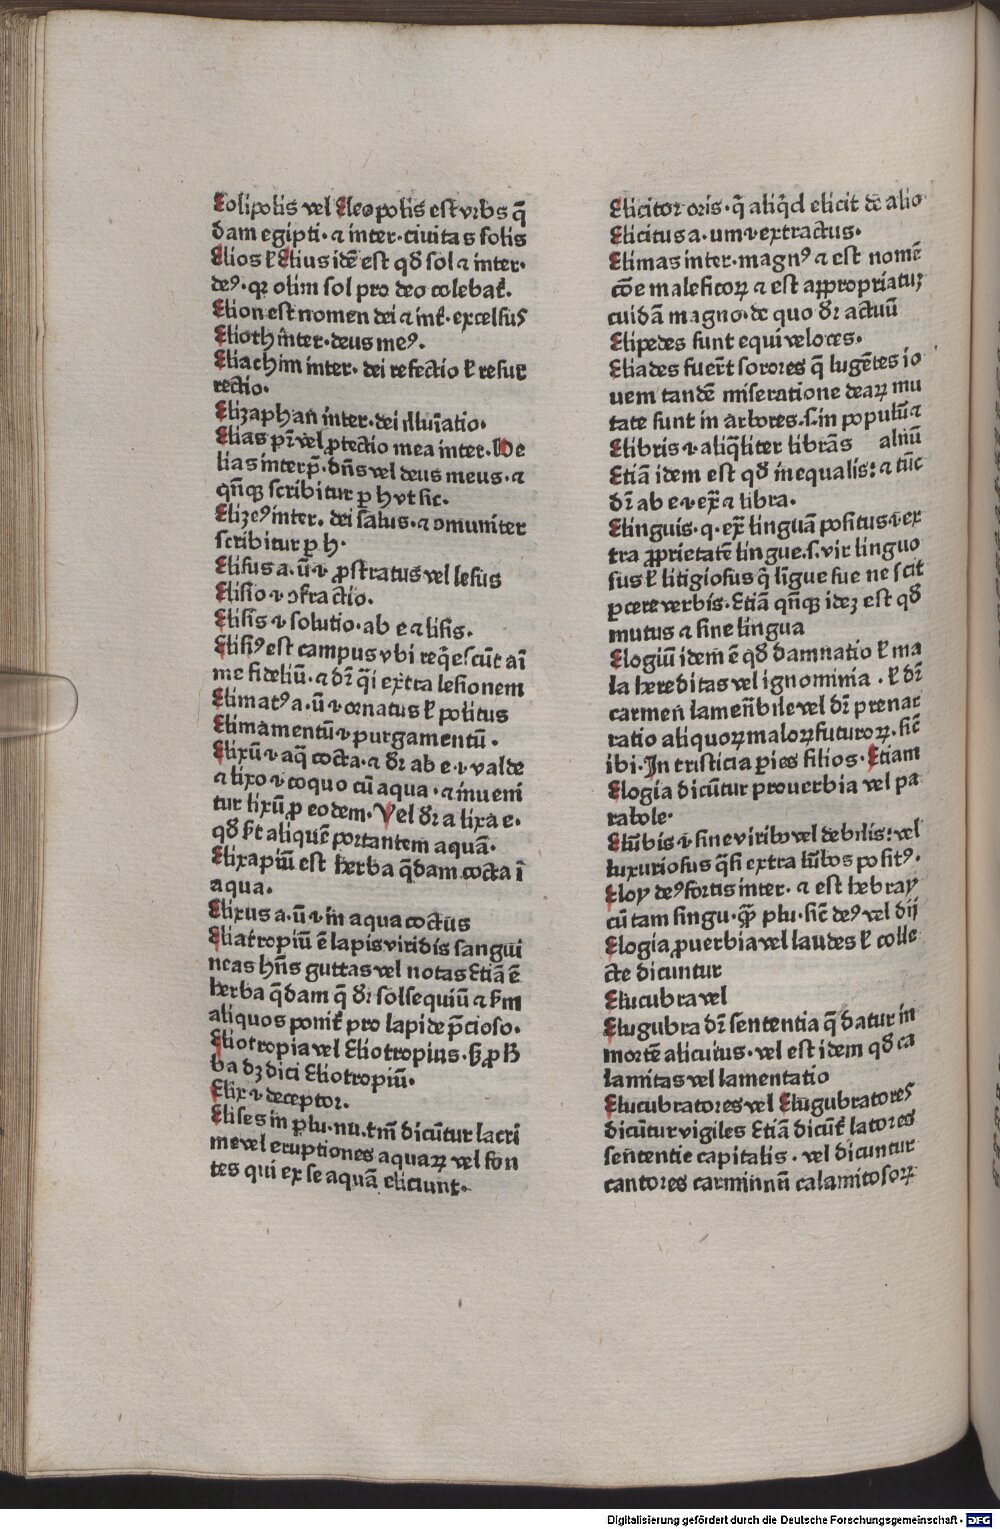 Eolipolis vel Eleopolis est vrbs q̄
dam egipti · ⁊ inter · ciuitas solis
Elios ł Elius idē est qð sol ⁊ inter ·
deꝰ · qꝛ olim sol pro deo colebat᷑.
Elion est nomen dei ⁊ int᷑ · excelsus
Elioth inter · deus meꝰ.
Eliachim inter · dei refectio ł resur
rectio.
Elizaphan inter · dei illuīatio.
Elias pr̄ vel ꝓtectio mea inter. He
lias interp̄ · dn̄s vel deus meus · ⁊
qn̄qꝫ scribitur ꝑ h vt sic.
Elizeꝰ inter · dei salus · ⁊ ꝯmuniter
scribitur ꝑ h ·
Elisus a · ū · i · ꝓstratus vel lesus
Elisio · i · ꝯfractio.
Elisis · i · solutio · ab e ⁊ lisis.
Elisiꝰ est campus vbi reqescūt aī
me fideliū · ⁊ dr̄ q̄si extra lesionem
Elimatꝰ a · ū · i · ornatus ł politus
Elimamentū · i · purgamentū ·
Elixū · i · aq̄ cocta · ⁊ dr̄ ab e · i · valde
⁊ lixo · i · coquo cū aqua · ⁊ inueni
tur lixū ꝓ eodem · Vel dr̄ a lixa e ·
qð sꝫ aliquē portantem aquā.
Elixapiū est herba q̄dam cocta ī
aqua.
Elixus a · ū · i · in aqua coctus
Eliatropiū ē lapis viridis sangui
neas hn̄s guttas vel notas Etiā ē
herba q̄dam q̄ dr̄ solsequiū ⁊ sm̄
aliquos ponit᷑ pro lapide p̄cioso.
Eliotropia vel Eliotropius · ꝫ ꝓ h̄
ba dꝫ dici Eliotropiū.
Elix · i · deceptor.
Elises in plu · nu · tm̄ dicūtur lacri
me vel eruptiones aquaꝝ vel fon
tes qui ex se aquā eliciunt.
Elicitor oris · q̄ aliq̄d elicit de alio
Elicitus a · um · i · extractus.
Elimas inter · magnꝰ ⁊ est nomē
cōe maleficoꝝ ⁊ est appropriatuꝫ
cuidā magno · de quo dr̄ actuū
Elipedes sunt equi veloces.
Eliades fuer̄t sorores q̄ lugētes io
uem tandē miseratione deaꝝ mu
tate sunt in arbores · s · in populū ⁊
alnū
Elibris · i · aliq̄liter librās
Etiā idem est qð inequalis: ⁊ tūc
dr̄ ab e · i · ex̄ ⁊ libra.
Elinguis · q · ex̄ linguā positus · i · ex
tra ꝓprietatē lingue · s · vir linguo
sus ł litigiosus q̄ līgue sue nescit
ꝑcere verbis · Etiā qn̄qꝫ ideꝫ est qð
mutus ⁊ sine lingua
Elogiū idem ē qð damnatio ł ma
la hereditas vel ignominia · ł dr̄
carmen lamen̄bile vel dr̄ prenar
ratio aliquoꝝ maloꝝ futuroꝝ · sic̄
ibi · In tristicia ꝑies filios · Etiam
Elogia dicūtur prouerbia vel pa
rabole.
Elūbis · i · sine viribꝰ vel debilis: vel
luxuriosus q̄si extra lūbos positꝰ.
Eloy deꝰ fortis inter · ⁊ est hebray
cū tam singu · q̄ꝫ plu · sic̄ deꝰ vel dij
Elogia ꝓuerbia vel laudes ł colle
cte dicuntur
Elucubra vel
Elugubra dr̄ sententia q̄ datur in
mortē alicuius · vel est idem qð ca
lamitas vel lamentatio
Elucubratores vel Elugubratores
dicūtur vigiles Etiā dicūt᷑ latores
sententie capitalis · vel dicuntur
cantores carminnū calamitosoꝝ
Digitalisierung gefördert durch die Deutsche Forschungsgemeinschaft - DFG